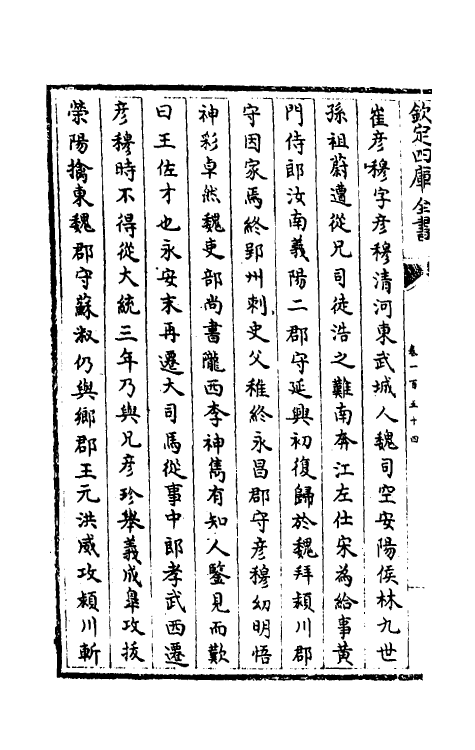 欽定四庫全書
卷一百五十四
崔彦穆字彦穆清河東武城人魏司空安陽侯林九世
孫祖蔚遭從兄司徒浩之難南奔江左仕宋為給事黄
門侍郎汝南義陽二郡守延興初復歸於魏拜潁川郡
守因家焉終郢州刺史父稚終永昌郡守彦穆幼明悟
神彩卓然魏吏部尚書隴西李神雋有知人鑒見而歎
曰王佐才也永安末再遷大司馬從事中郎孝武西遷
彦穆時不得從大統三年乃與兄彦珍舉義成臯攻拔
滎陽擒東魏郡守蘇淑仍與鄉郡王元洪威攻潁川斬